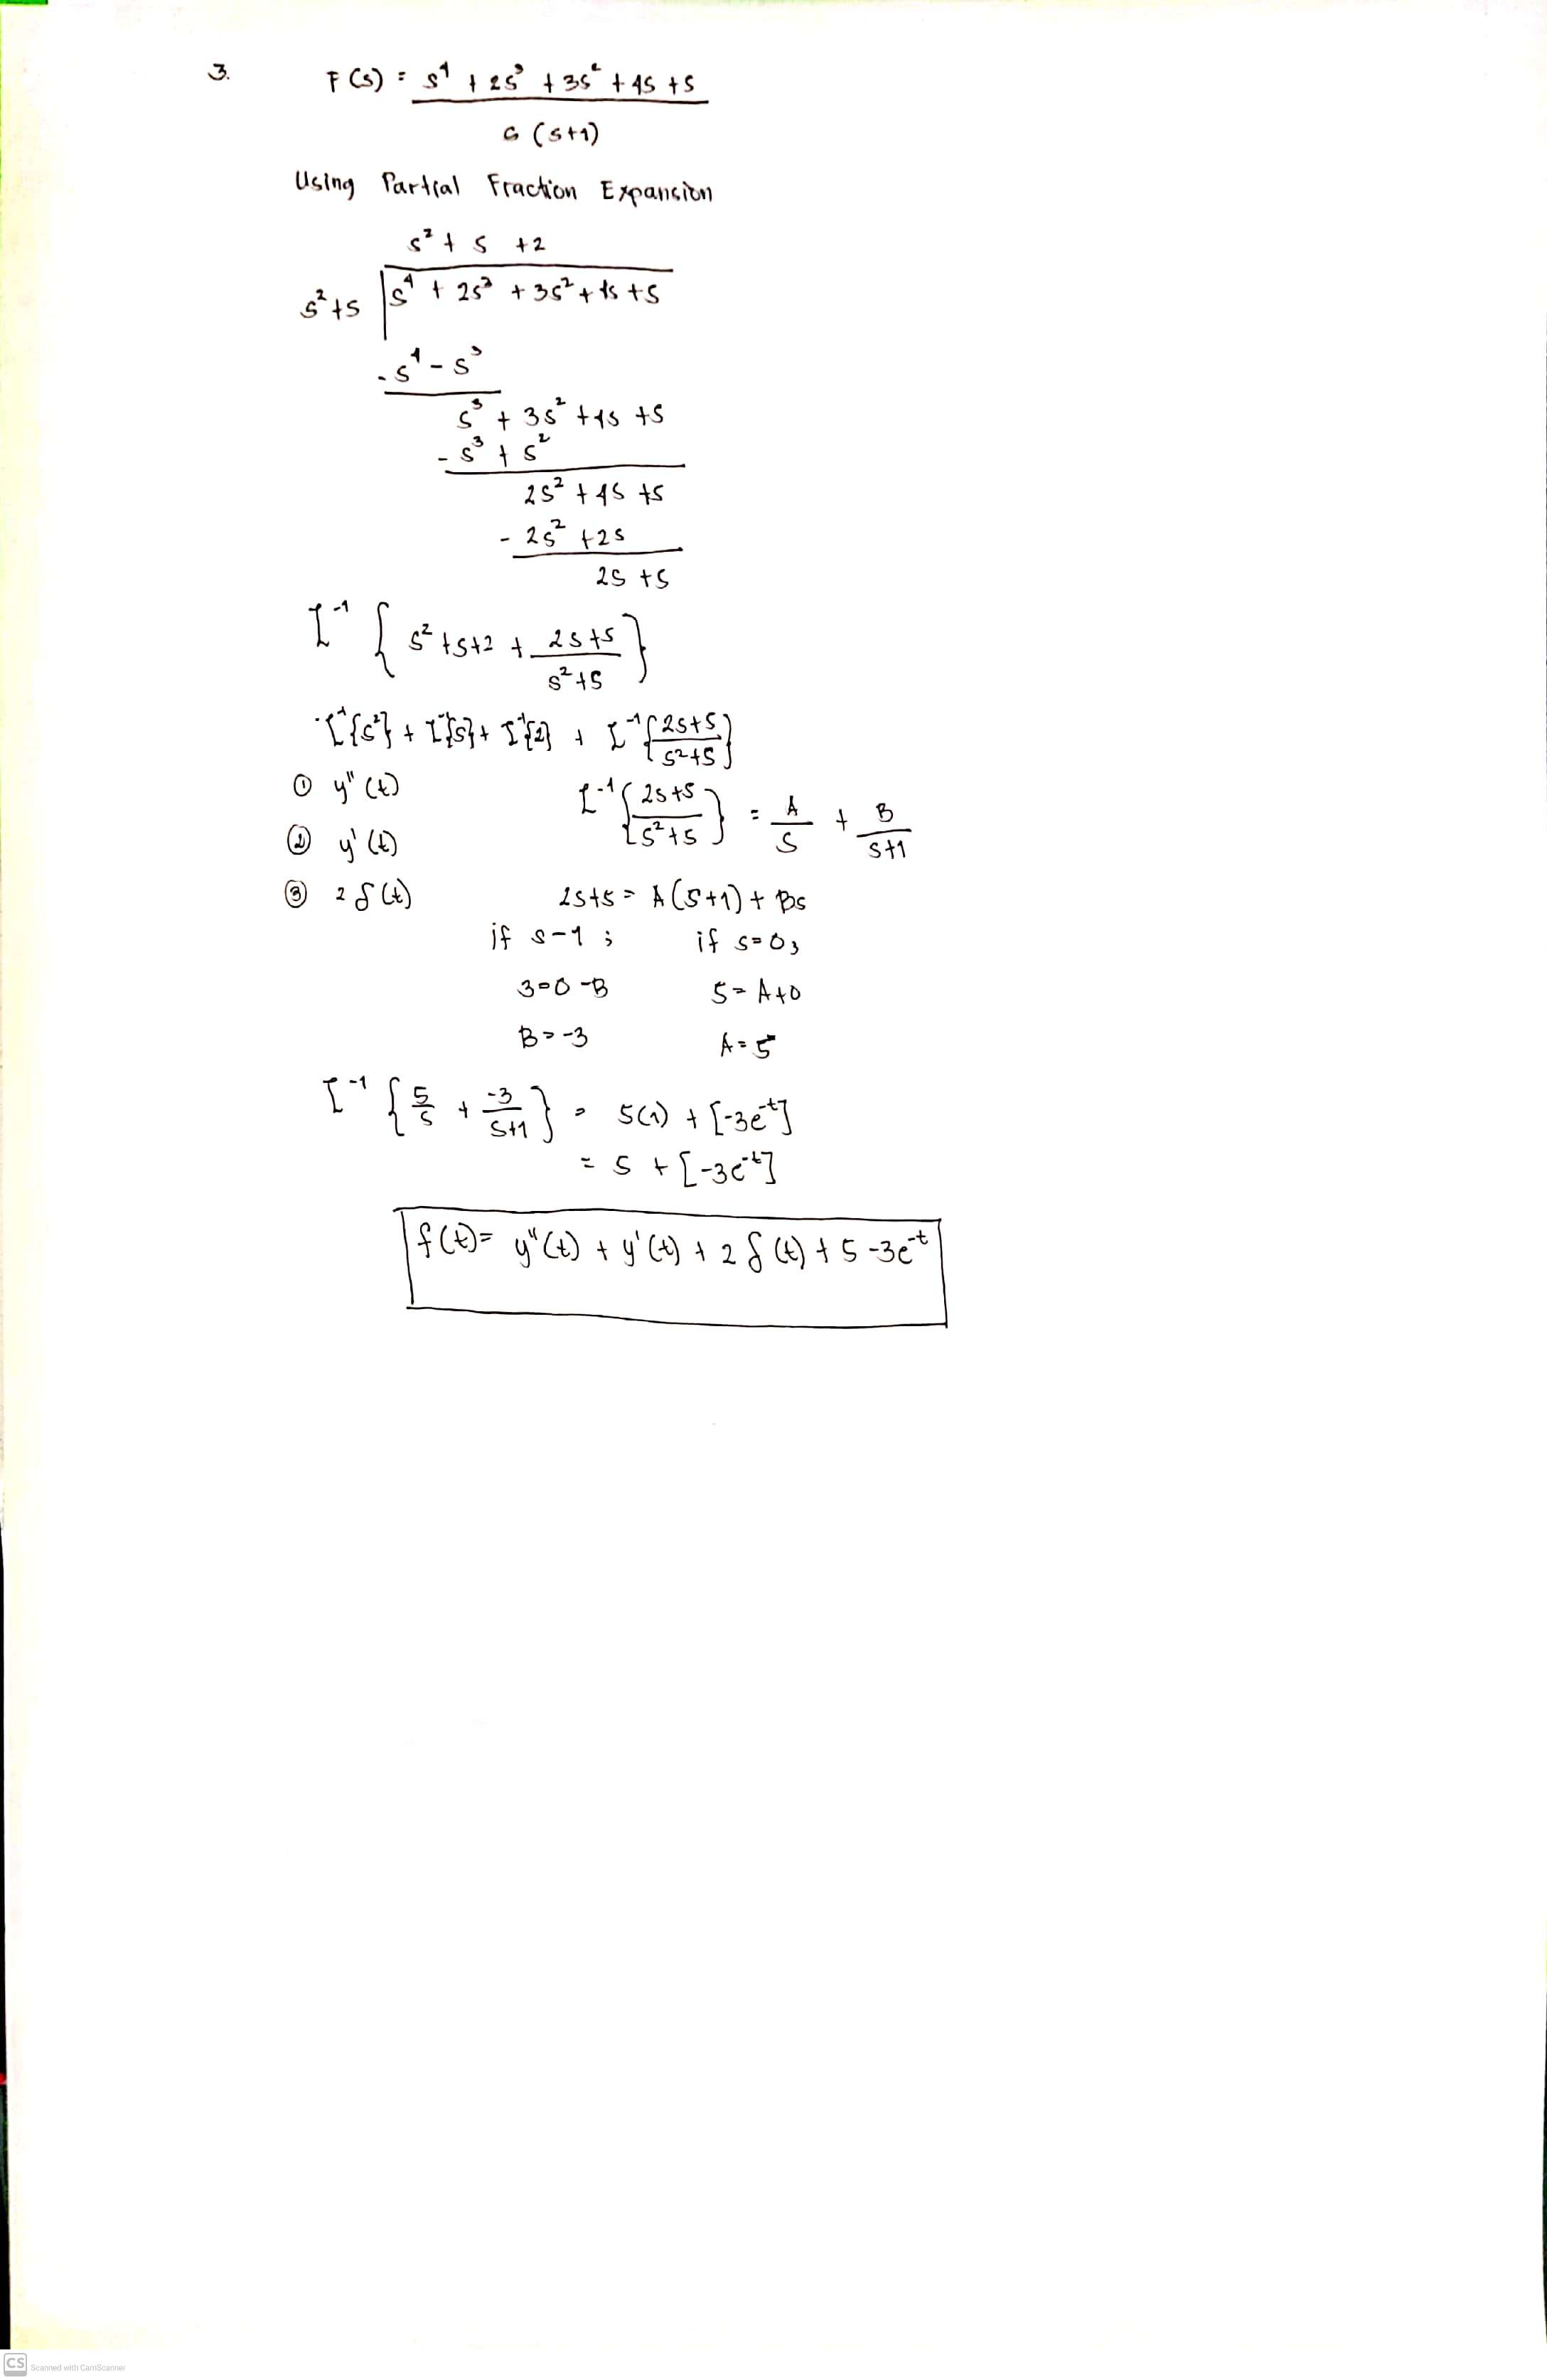 3. F(s) = s⁴ + 2s³ + 3s² + 4s + 5
s(s+1)
Using Partial Fraction Expansion
s² + s + 2
s²+s | s⁴ + 2s³ + 3s² + 4s + 5
- s⁴ - s³
s³ + 3s² + 4s + 5
- s³ + s²
2s² + 4s + 5
- 2s² + 2s
2s + 5
L⁻¹ { s² + s + 2 + (2s+5)/(s²+s) }
L⁻¹{s²} + L⁻¹{s} + L⁻¹{2} + L⁻¹{ (2s+5)/(s²+s) }
① y''(t) L⁻¹{ (2s+5)/(s²+s) } = A/s + B/(s+1)
② y'(t)
③ 2δ(t) 2s+5 = A(s+1) + Bs
if s-1 ; if s=0;
3=0-B 5=A+0
B=-3 A=5
L⁻¹ { 5/s + -3/(s+1) } = 5(1) + [-3e⁻ᵗ]
= 5 + [-3e⁻ᵗ]
f(t) = y''(t) + y'(t) + 2δ(t) + 5 - 3e⁻ᵗ
CS Scanned with CamScanner